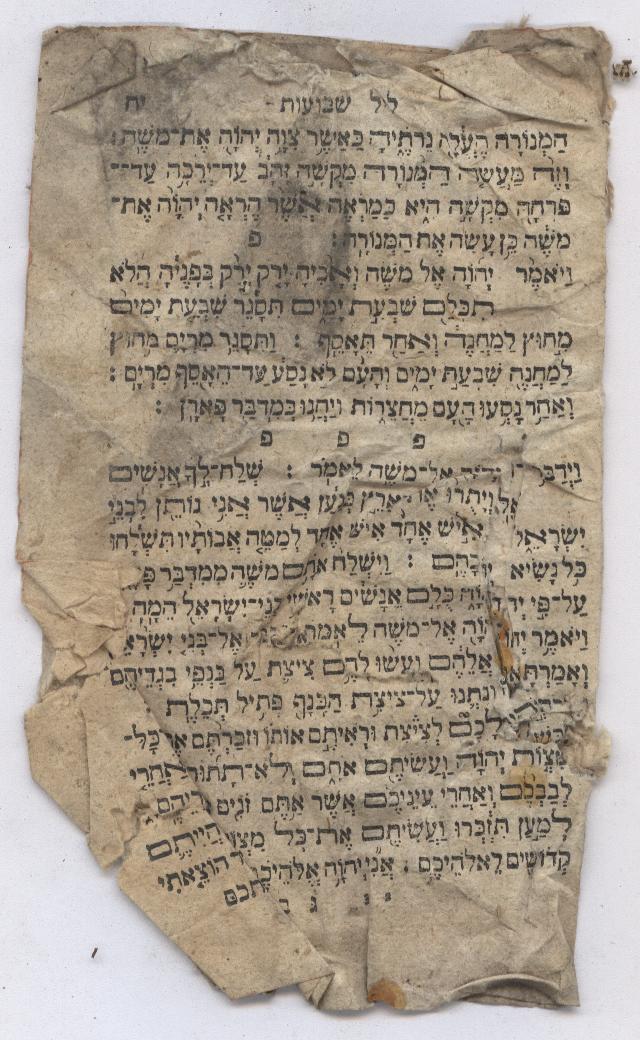 ליל שבועות יח
הַמְּנוֹרָה הֶעֱלָה נֵרֹתֶיהָ כַּאֲשֶׁר צִוָּה יְהוָֹה אֶת־מֹשֶׁה :
וְזֶה מַעֲשֵׂה הַמְּנוֹרָה מִקְשָׁה זָהָב עַד־יְרֵכָהּ עַד־
פִּרְחָהּ מִקְשָׁה הִיא כַּמַּרְאֶה אֲשֶׁר הֶרְאָה יְהוָֹה אֶת־
מֹשֶׁה כֵּן עָשָׂה אֶת הַמְּנוֹרָה : פ
וַיֹּאמֶר יְהוָֹה אֶל מֹשֶׁה וְאָבִיהָ יָרֹק יָרַק בְּפָנֶיהָ הֲלֹא
תִכָּלֵם שִׁבְעַת יָמִים תִּסָּגֵר שִׁבְעַת יָמִים
מִחוּץ לַמַּחֲנֶה וְאַחַר תֵּאָסֵף : וַתִּסָּגֵר מִרְיָם מִחוּץ
לַמַּחֲנֶה שִׁבְעַת יָמִים וְהָעָם לֹא נָסַע עַד־הֵאָסֵף מִרְיָם :
וְאַחַר נָסְעוּ הָעָם מֵחֲצֵרוֹת וַיַּחֲנוּ בְּמִדְבַּר פָּארָן :
פ פ פ
וַיְדַבֵּר אֶל־מֹשֶׁה לֵּאמֹר : שְׁלַח־לְךָ אֲנָשִׁים
וְיָתֻרוּ אֶרֶץ כְּנַעַן אֲשֶׁר אֲנִי נוֹתֵן לִבְנֵי
יִשְׂרָאֵל אִישׁ אֶחָד אִישׁ אֶחָד לְמַטֵּה אֲבוֹתָיו תִּשְׁלָחוּ
כֹּל נָשִׂיא בָהֶם : וַיִּשְׁלַח אֹתָם מֹשֶׁה מִמִּדְבַּר
עַל־פִּי כֻּלָּם אֲנָשִׁים רָאשֵׁי בְנֵי־יִשְׂרָאֵל הֵמָּה
וַיֹּאמֶר אֶל־מֹשֶׁה לֵּאמֹר אֶל־בְּנֵי
וְאָמַרְתָּ אֲלֵהֶם וְעָשׂוּ לָהֶם צִיצִת עַל כַּנְפֵי בִגְדֵיהֶם
וְנָתְנוּ עַל־צִיצִת הַכָּנָף פְּתִיל תְּכֵלֶת :
לָכֶם לְצִיצִת וּרְאִיתֶם אוֹתוֹ וּזְכַרְתֶּם אֶת כָּל־
מִצְוֹת יְהוָֹה וַעֲשִׂיתֶם אֹתָם וְלֹא־תָתוּרוּ אַחֲרֵי
לְבַבְכֶם וְאַחֲרֵי עֵינֵיכֶם אֲשֶׁר אַתֶּם זוֹנִים
לְמַעַן תִּזְכְּרוּ וַעֲשִׂיתֶם אֶת־כָּל וִהְיִיתֶם
קְדוֹשִׁים לֵאלֹהֵיכֶם : אֲנִי יְהוָֹה אֱלֹהֵיכֶם הוֹצֵאתִי